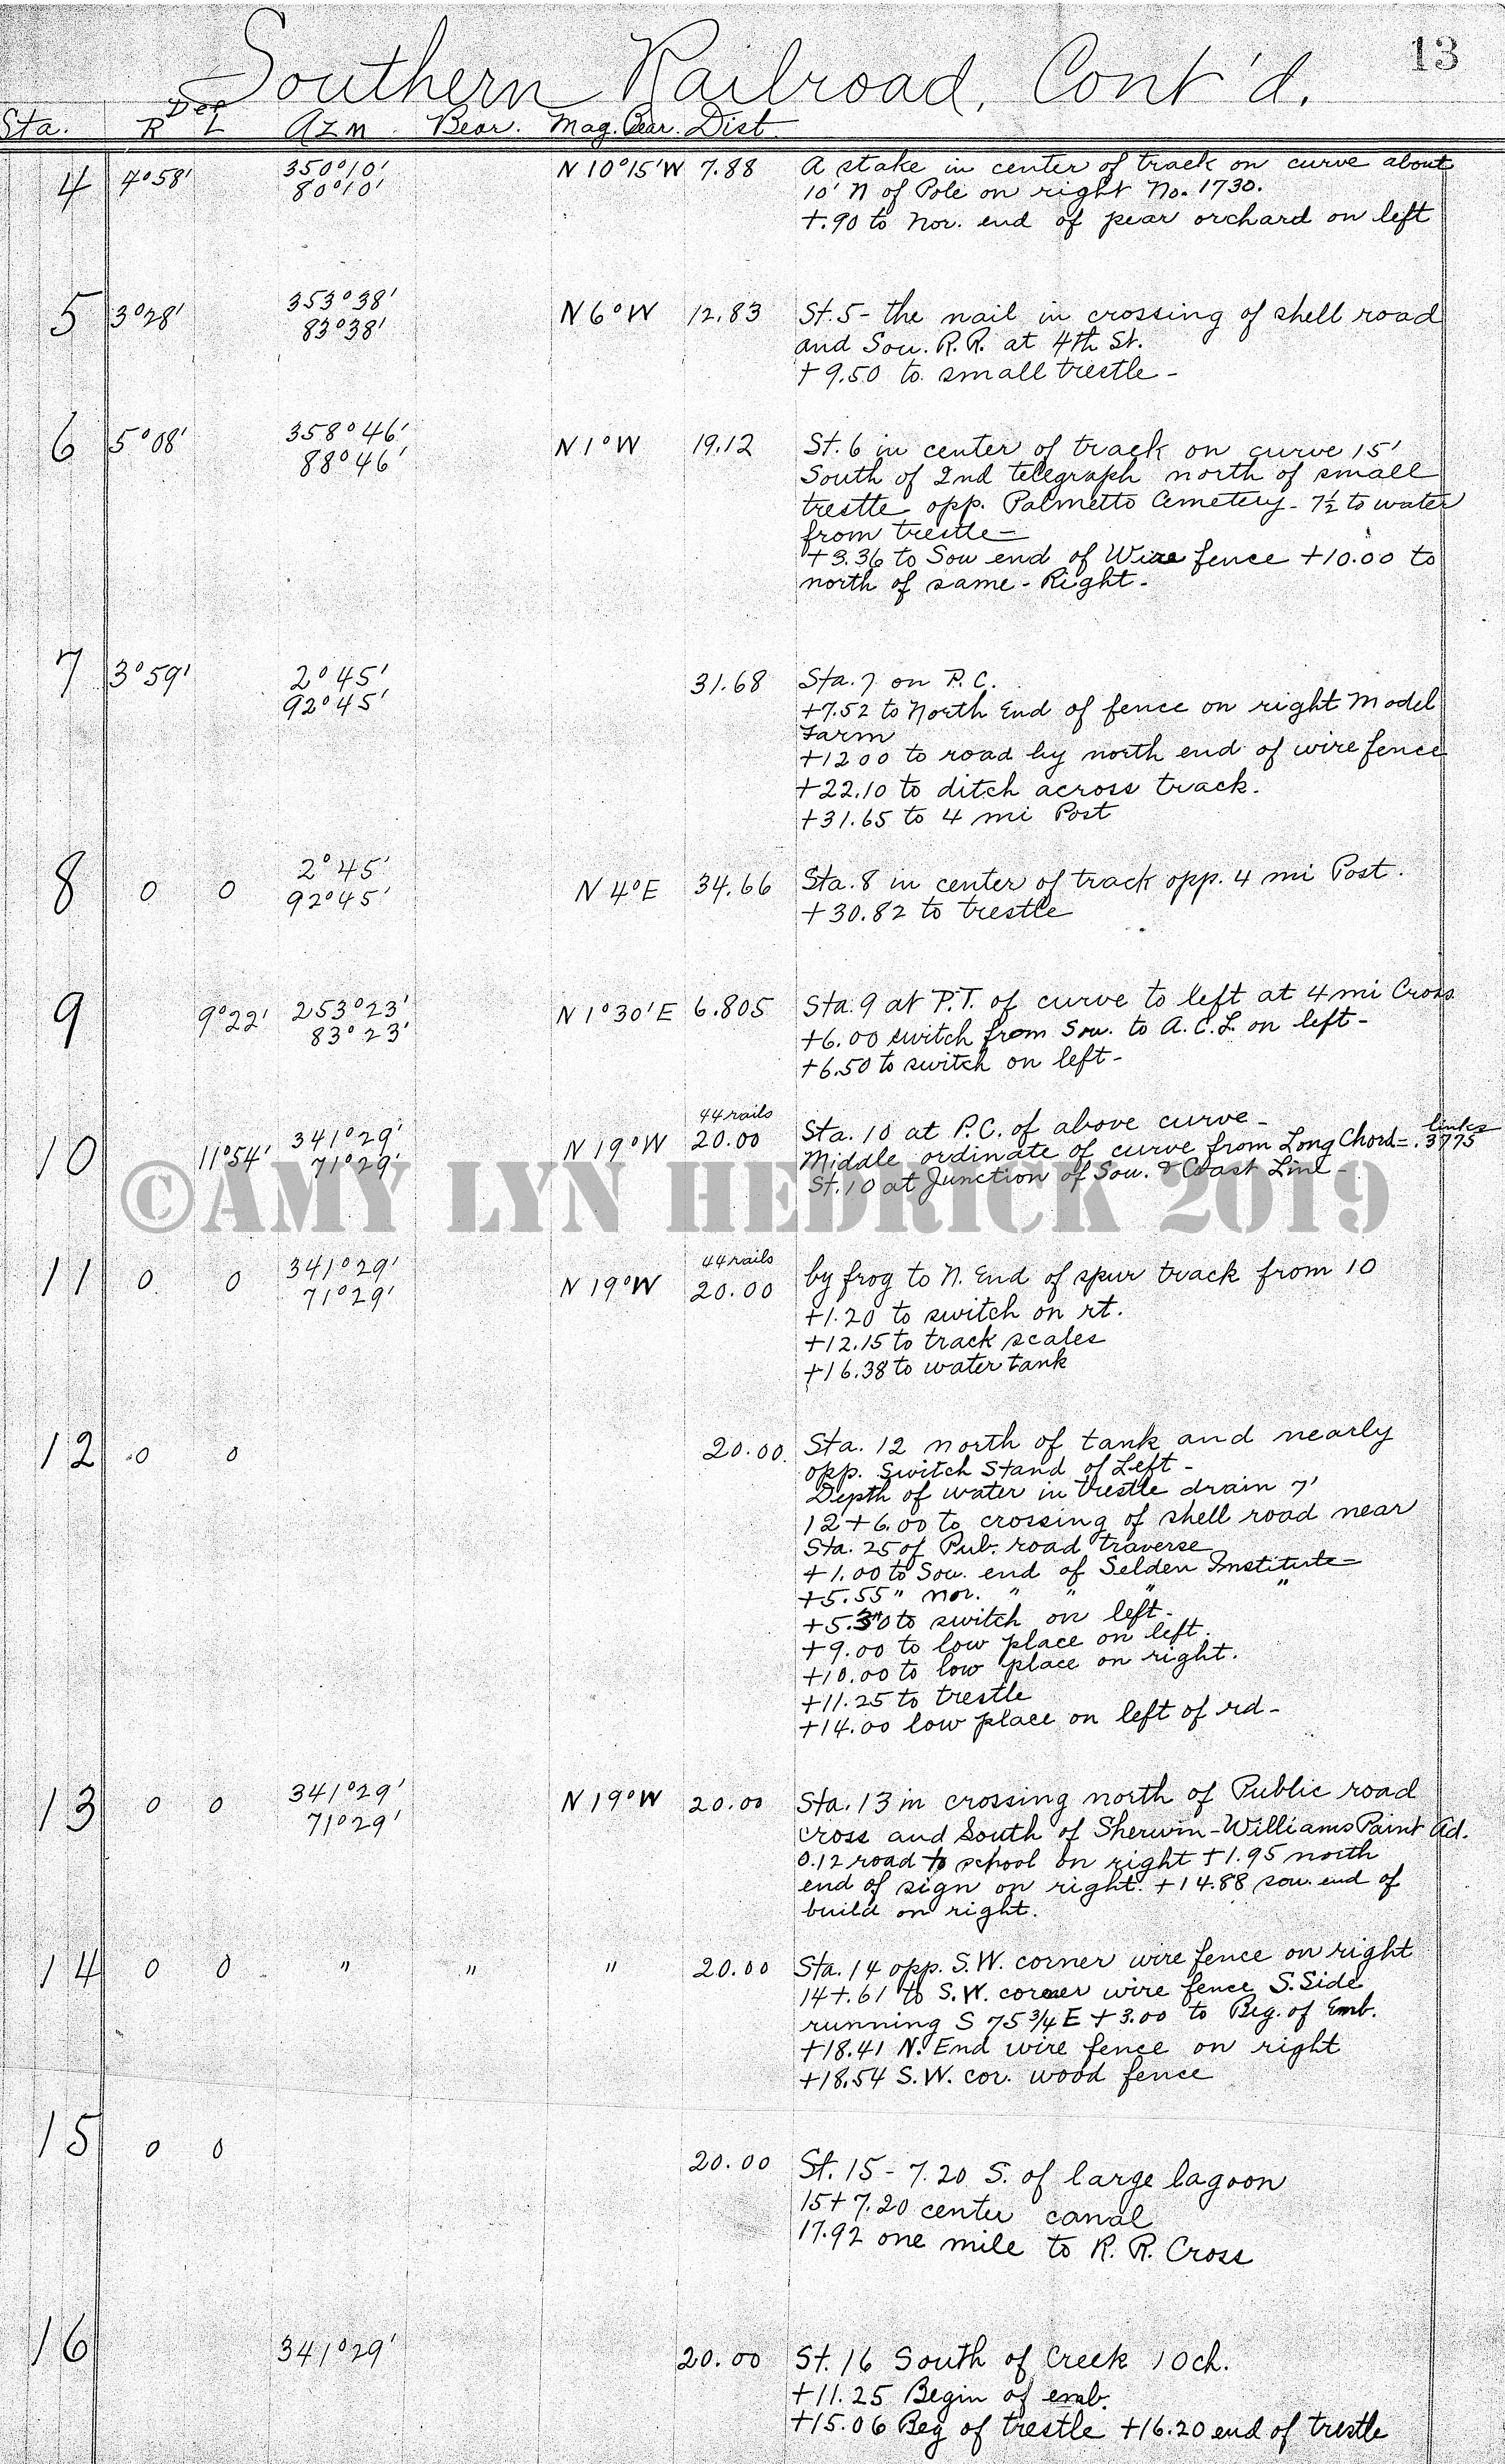 13
Southern Railroad, Cont'd.
Sta. R Def L Azm. Bear. Mag. Bear. Dist.
4 4°58' 350°10' N 10°15'W 7.88 A stake in center of track on curve about
80°10' 10' N of Pole on right No. 1730.
+.90 to Nor. end of pear orchard on left
5 3°28' 353°38' N 6°W 12.83 St. 5 - the nail in crossing of shell road
83°38' and Sou. R.R. at 4th St.
+9.50 to small trestle -
6 5°08' 358°46' N 1°W 19.12 St. 6 in center of track on curve 15'
88°46' South of 2nd telegraph north of small
trestle opp. Palmetto Cemetery - 7½ to water
from trestle -
+3.36 to Sou end of Wire fence +10.00 to
north of same - Right -
7 3°59' 2°45' 31.68 Sta. 7 on P.C.
92°45' +7.52 to North End of fence on right Model
Farm
+12 00 to road by north end of wire fence
+22.10 to ditch across track.
+31.65 to 4 mi Post
8 0 0 2°45' N 4°E 34.66 Sta. 8 in center of track opp. 4 mi Post.
92°45' +30.82 to trestle
9 9°22' 253°23' N 1°30'E 6.805 Sta. 9 at P.T. of curve to left at 4 mi Cross
83°23' +6.00 switch from Sou. to A.C.L. on left -
+6.50 to switch on left -
44 rails
10 11°54' 341°29' N 19°W 20.00 Sta. 10 at P.C. of above curve -
71°29' Middle ordinate of curve from Long Chord = .3775 links
St. 10 at Junction of Sou. & Coast Line -
©AMY LYN HEDRICK 2019
44 rails
11 0 0 341°29' N 19°W 20.00 by frog to N. End of spur track from 10
71°29' +1.20 to switch on rt.
+12.15 to track scales
+16.38 to water tank
12 0 0 20.00. Sta. 12 north of tank and nearly
opp. Switch Stand of Left -
Depth of water in trestle drain 7'
12+6.00 to crossing of shell road near
Sta. 25 of Pub. road traverse
+1.00 to Sou. end of Selden Institute -
+5.55 " nor. " " " "
+5.30 to switch on left -
+9.00 to low place on left.
+10.00 to low place on right.
+11.25 to trestle
+14.00 low place on left of rd -
13 0 0 341°29' N 19°W 20.00 Sta. 13 in crossing north of Public road
71°29' cross and South of Sherwin-Williams Paint Ad.
0.12 road to school on right +1.95 north
end of sign on right. +14.88 sou. end of
build on right.
14 0 0 " " " 20.00 Sta. 14 opp. S.W. corner wire fence on right
14+.61 to S.W. corner wire fence S. Side
running S 75¾ E +3.00 to Beg. of Emb.
+18.41 N. End wire fence on right
+18.54 S.W. cor. wood fence
15 0 0 20.00 St. 15 - 7.20 S. of large lagoon
15+7.20 center canal
17.92 one mile to R. R. Cross
16 341°29' 20.00 St. 16 South of Creek 10ch.
+11.25 Begin of emb.
+15.06 Beg of trestle +16.20 end of trestle